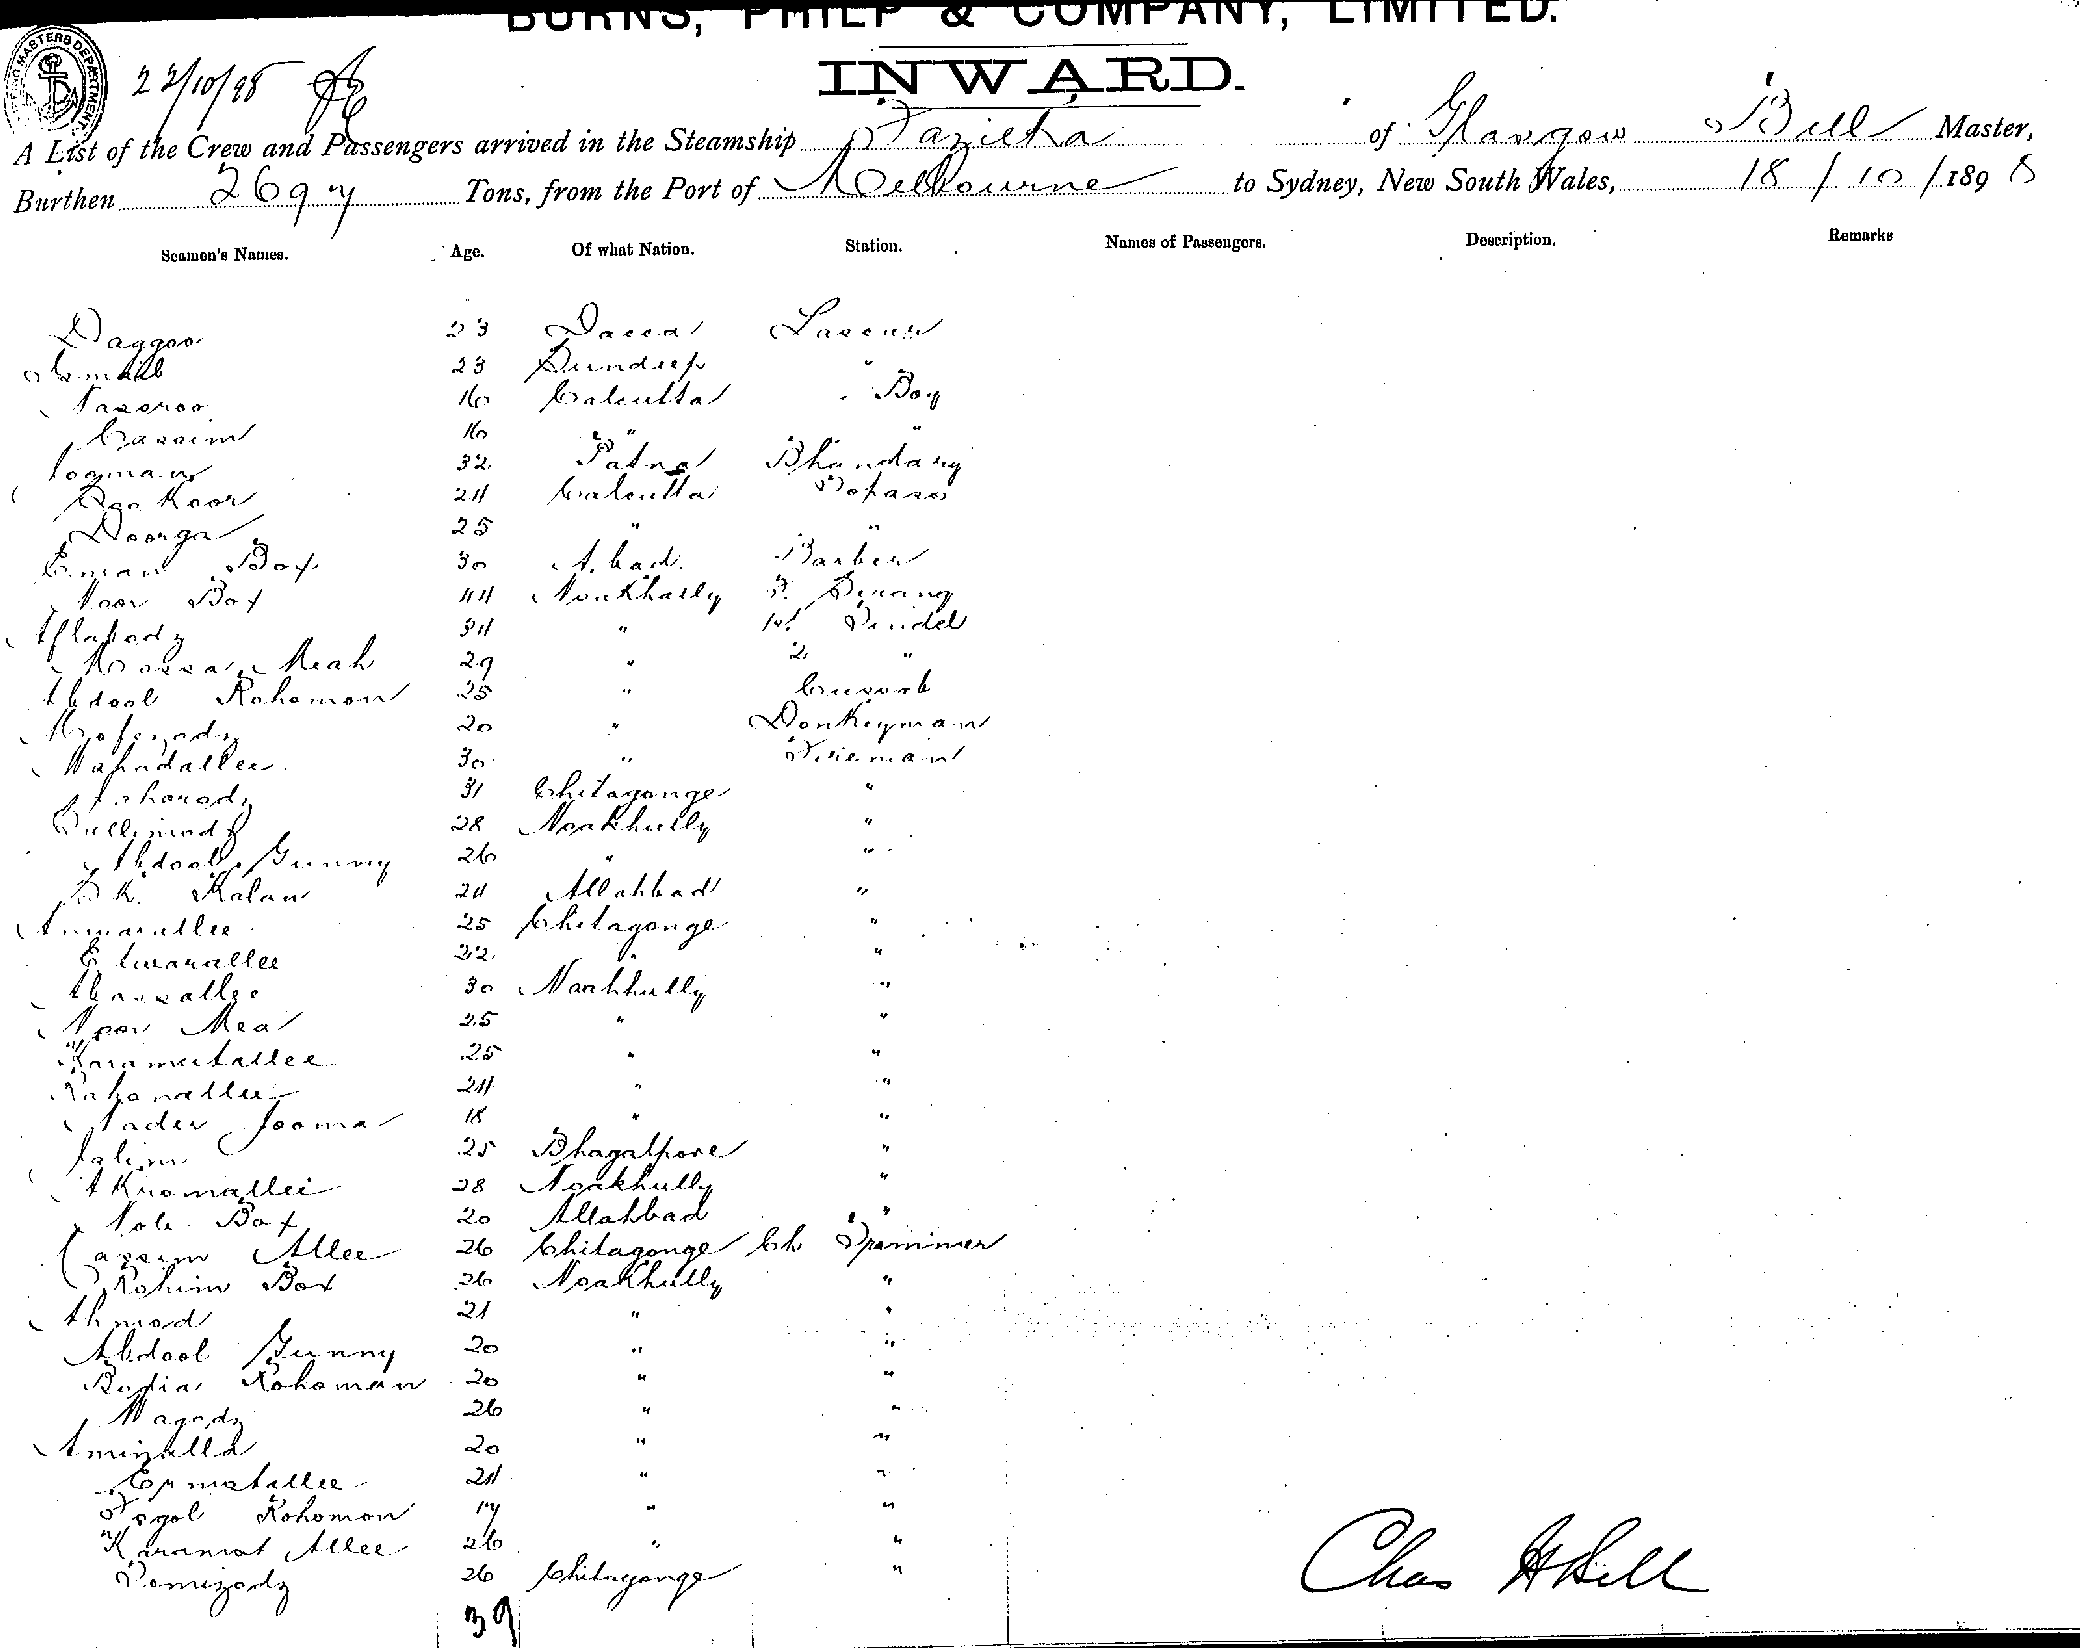 BURNS, PHILP & COMPANY, LIMITED.
INWARD.
MASTERS DEPARTMENT
22/10/98
A List of the Crew and Passengers arrived in the Steamship Fazilka of Glasgow Bell Master,
Burthen 2697 Tons, from the Port of Melbourne to Sydney, New South Wales, 18/10/1898
Seamen's Names. Age. Of what Nation. Station. Names of Passengers. Description. Remarks
Daggoo 23 Dacca Lascur
Ismail 23 Sundeep "
Nasseroo 16 Calcutta " Boy
Cassim 16 " "
Logman 32 Patna Bhandary
24 Calcutta Topass
Doorga 25 " "
Eman Box 30 A.bad. Barber
Noor Box 44 Noakhally F. Serang
34 " 1st Tindel
Meah 29 " 2 "
Abdool Rohomon 25 " Cussab
20 " Donkeyman
Wahadallee 30 " Fireman
31 Chitagonge "
28 Noakhully "
Abdool Gunny 26 " "
Sk. Kalan 24 Allahbad "
Anwarallee 25 Chitagonge "
Elwarallee 22 " "
Abassallee 30 Noakhully "
Noor Mea 25 " "
Karamutallee 25 " "
24 " "
Nader Jooma 18 " "
Salim 25 Bhagalpore "
Akromallee 28 Noakhully "
Box 20 Allahbad "
Cassim Allee 26 Chitagonge Ch Tremmer
Rohim Box 26 Noakhully "
Ahmod 21 " "
Abdool Gunny 20 " "
Bodia Rohoman 20 " "
26 " "
Aminulla 20 " "
Ermatallee 24 " "
Fogol Rohomon 17 " "
Karamot Allee 26 " "
26 Chitagonge "
39
Chas H Bell